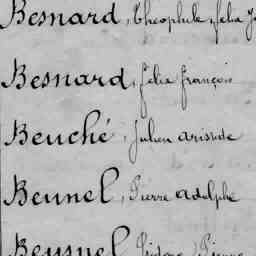 Besnard, Théophile, félix
Besnard, félix françois
Beuché, Julien aristide
Beunel, Pierre adolphe
Beunel, Isidore, Pierre